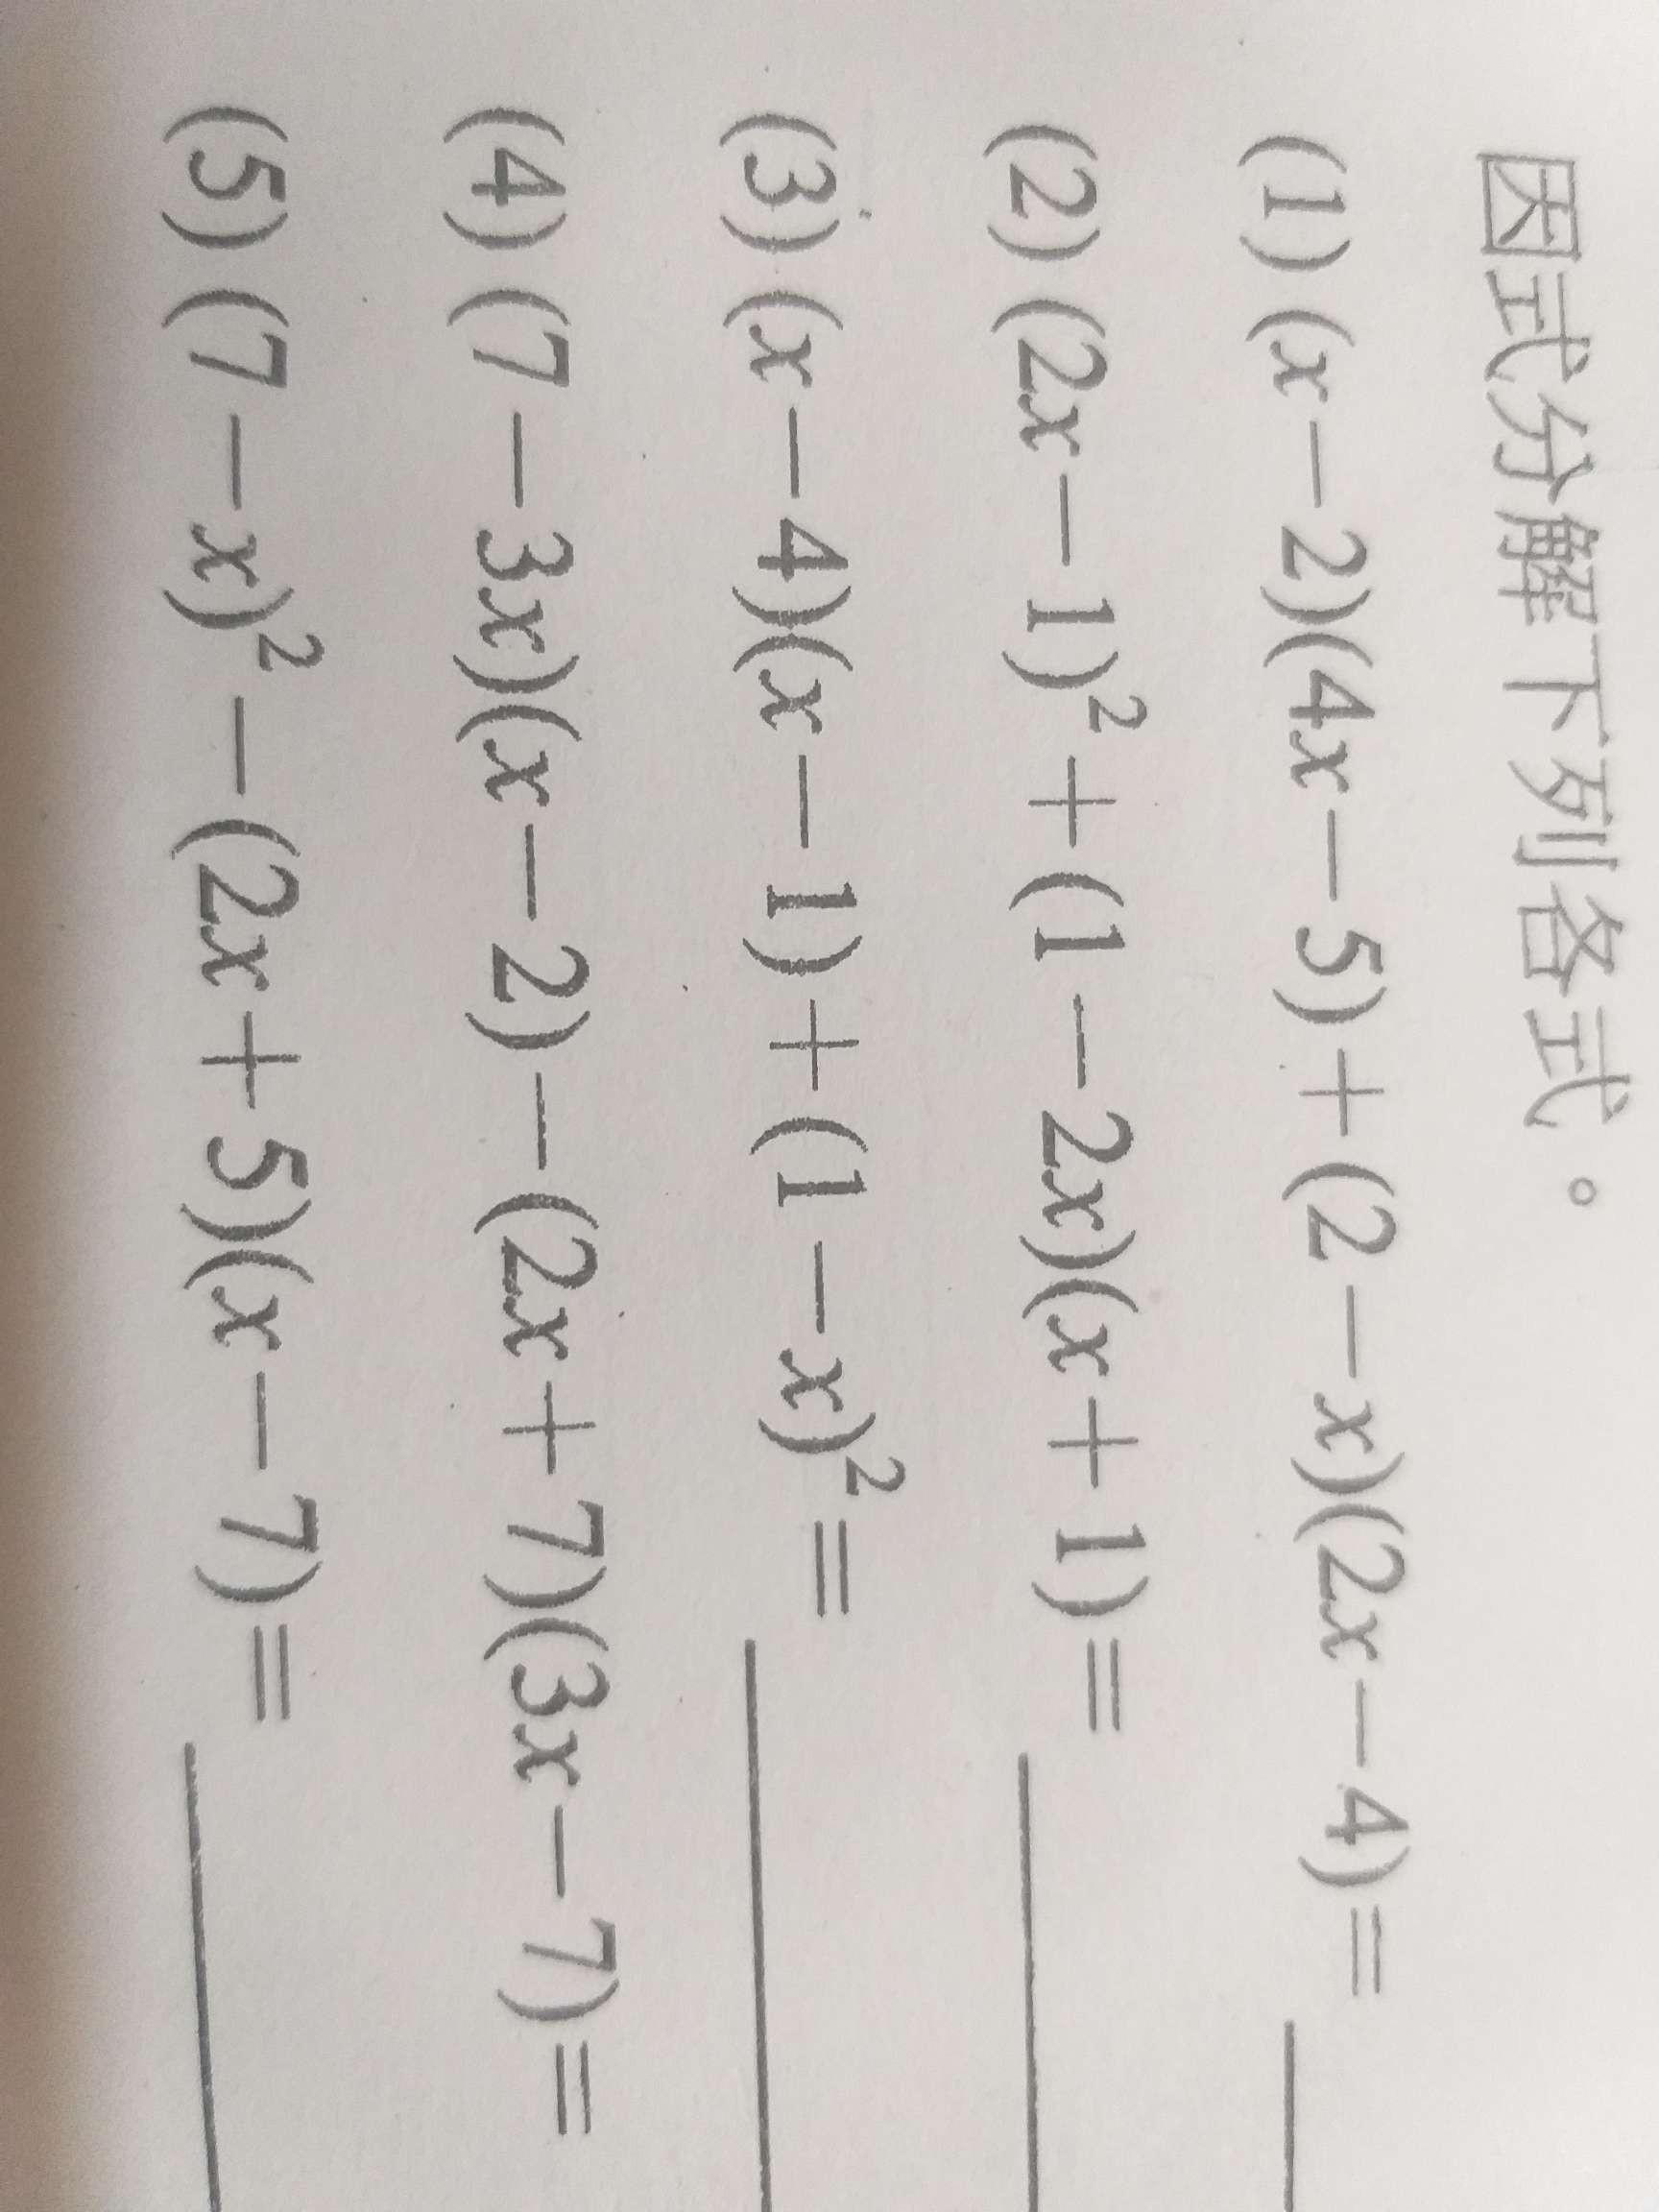 因式分解下列各式。
(1) (x－2)(4x－5)＋(2－x)(2x－4)＝
(2) (2x－1)²＋(1－2x)(x＋1)＝
(3) (x－4)(x－1)＋(1－x)²＝
(4) (7－3x)(x－2)－(2x＋7)(3x－7)＝
(5) (7－x)²－(2x＋5)(x－7)＝